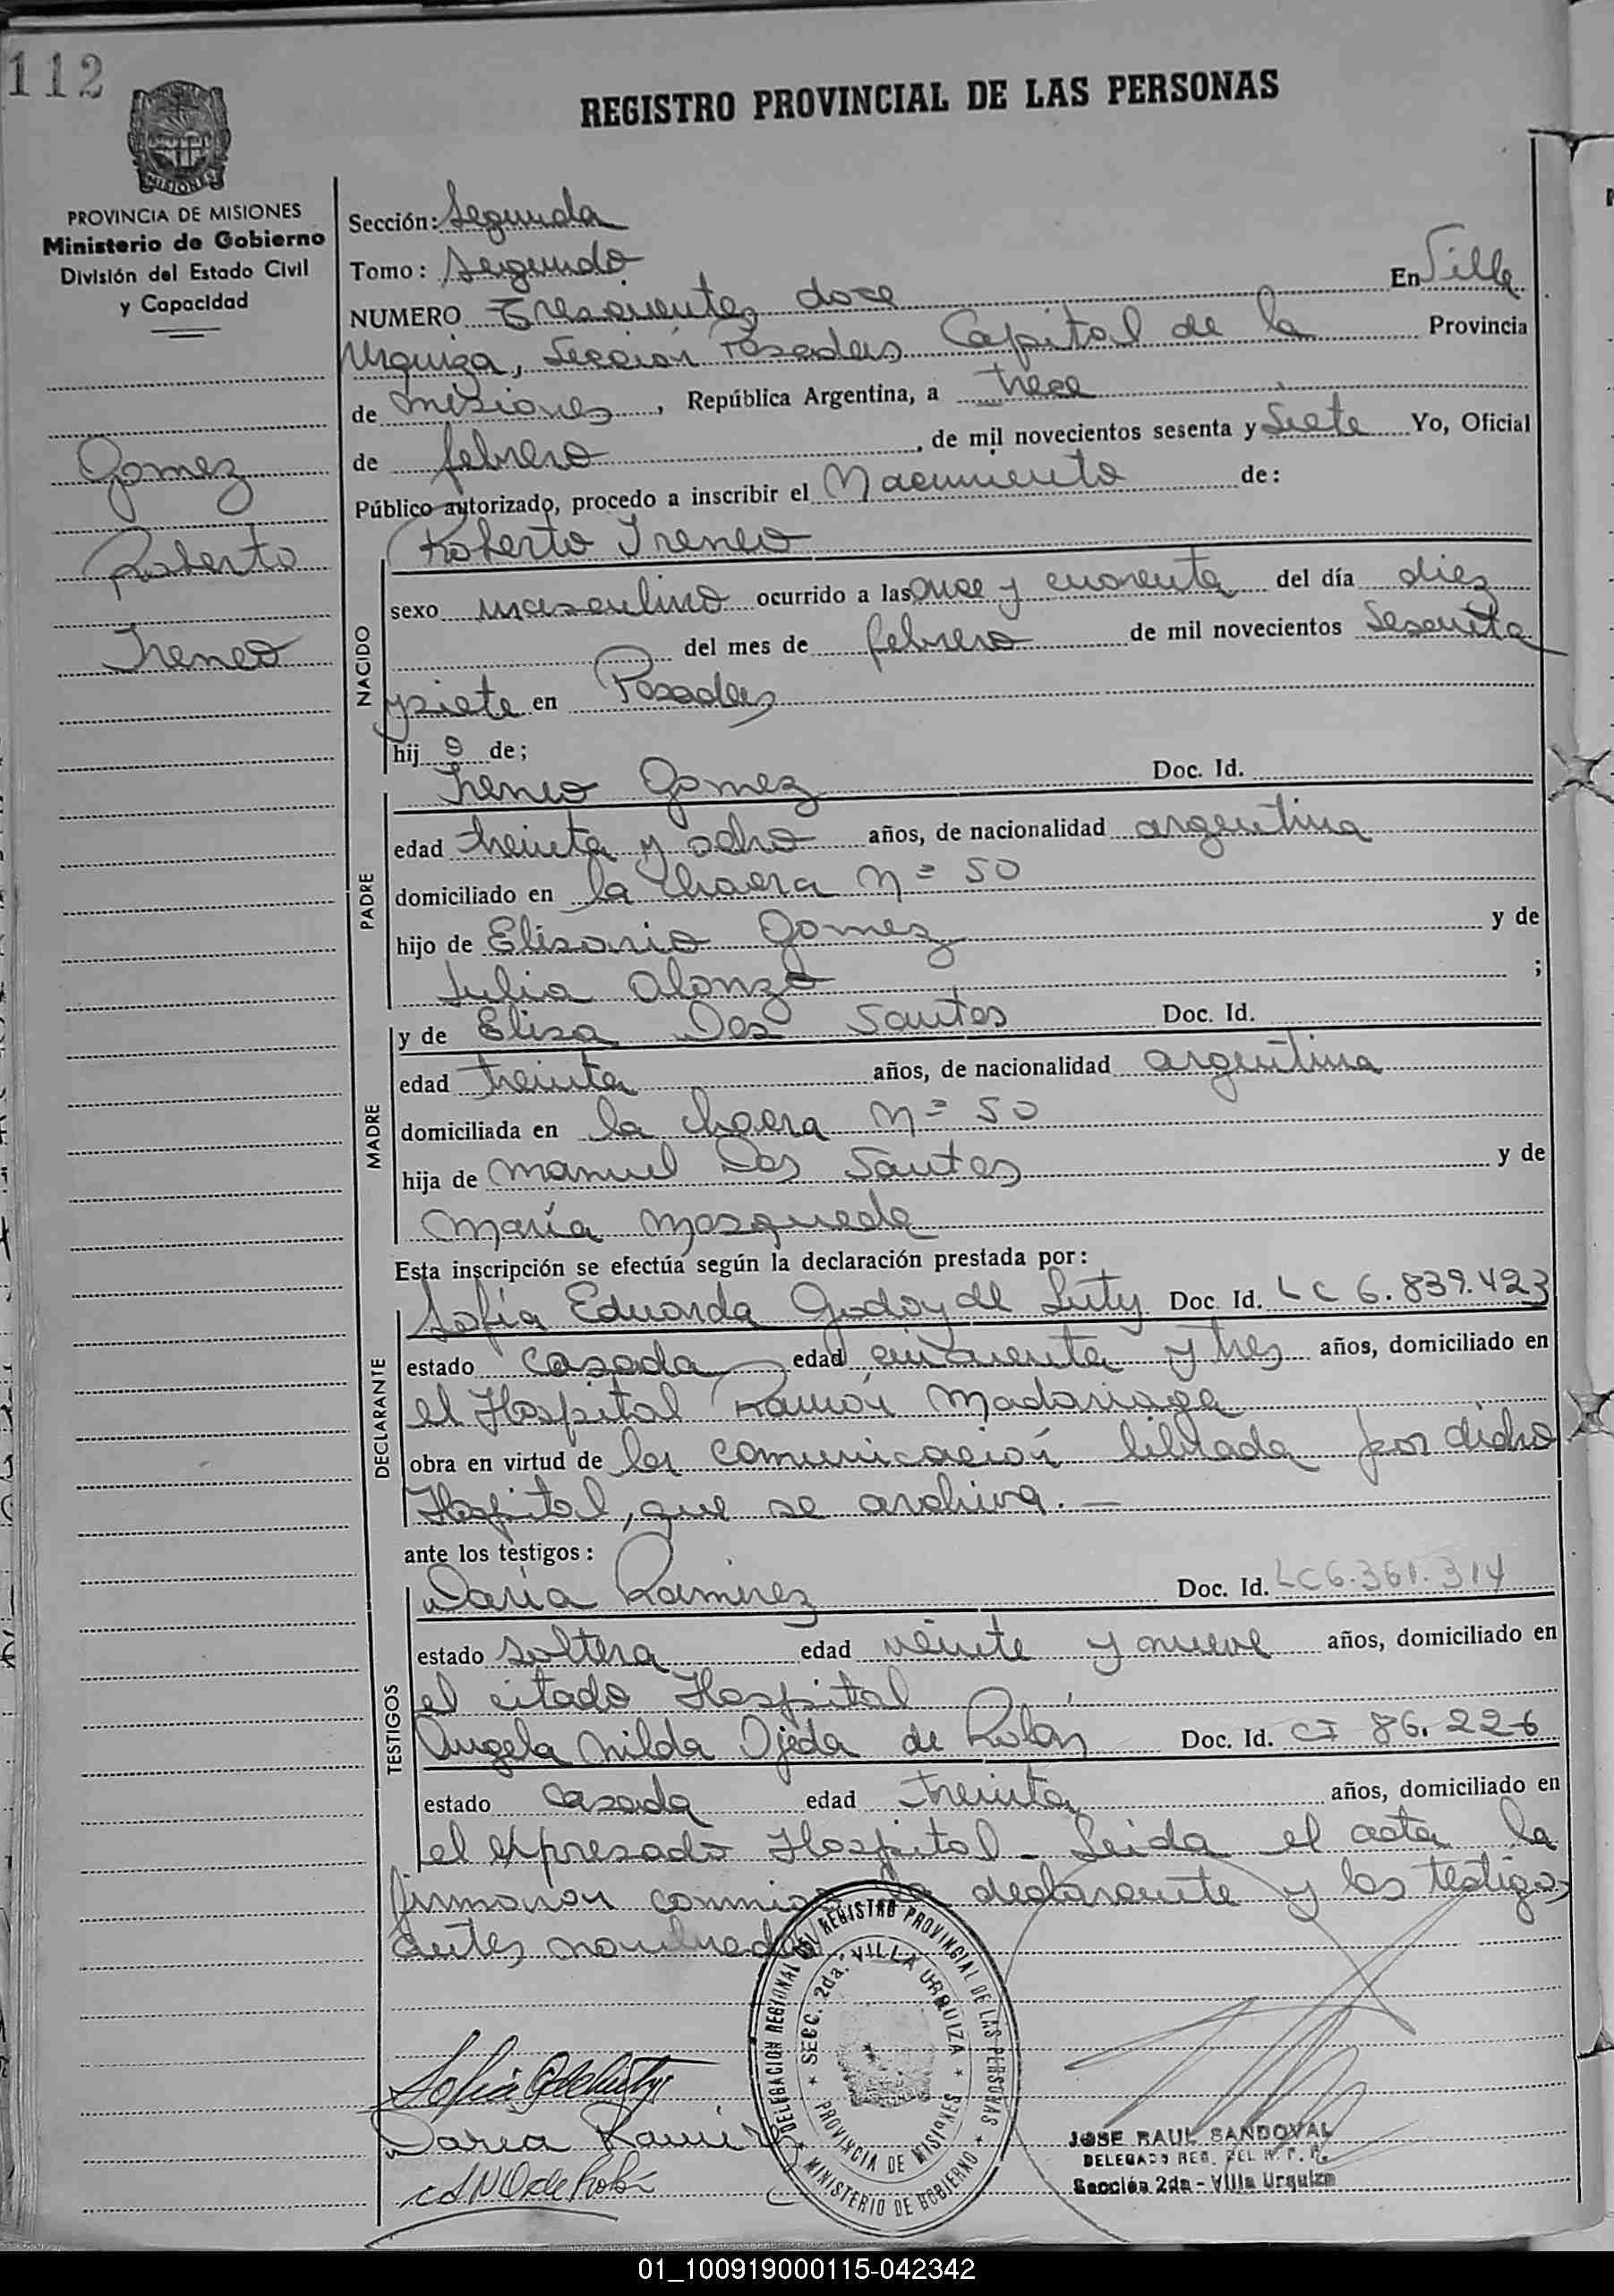 112
REGISTRO PROVINCIAL DE LAS PERSONAS
MISIONES
PROVINCIA DE MISIONES
Ministerio de Gobierno
División del Estado Civil
y Capacidad
Gomez
Roberto
Ireneo
Sección: Segunda
Tomo: Segundo
NUMERO Trescientos doce En Villa
Urquiza, Sección Posadas Capital de la Provincia
de Misiones, República Argentina, a trece
de febrero, de mil novecientos sesenta y siete Yo, Oficial
Público autorizado, procedo a inscribir el Nacimiento de:
Roberto Ireneo
NACIDO
sexo masculino ocurrido a las once y cuarenta del día diez
del mes de febrero de mil novecientos sesenta
y siete en Posadas
hij o de;
Ireneo Gomez Doc. Id.
PADRE
edad treinta y ocho años, de nacionalidad argentina
domiciliado en la Chacra Nº 50
hijo de Elisario Gomez y de
Julia Alonzo ;
y de Elisa Dos Santos Doc. Id.
MADRE
edad treinta años, de nacionalidad argentina
domiciliada en la chacra Nº 50
hija de Manuel Dos Santos y de
María Mosqueda
Esta inscripción se efectúa según la declaración prestada por:
Sofía Eduarda Godoy de Luty Doc. Id. LC 6.839.423
DECLARANTE
estado casada edad cuarenta y tres años, domiciliado en
el Hospital Ramón Madariaga
obra en virtud de la comunicación librada por dicho
Hospital, que se archiva.—
ante los testigos:
Daría Ramirez Doc. Id. LC 6.361.314
TESTIGOS
estado soltera edad veinte y nueve años, domiciliado en
el citado Hospital
Angela Nilda Ojeda de Rolón Doc. Id. CI 86.226
estado casada edad treinta años, domiciliado en
el expresado Hospital - Leida el acta la
firmaron conmigo la declarante y los testigos
antes nombrados
DELEGACION REGIONAL DEL REGISTRO PROVINCIAL DE LAS PERSONAS
SECC. 2da. VILLA URQUIZA
PROVINCIA DE MISIONES
MINISTERIO DE GOBIERNO
Sofía G de Luty
Daria Ramirez
JOSE RAUL SANDOVAL
DELEGADO REG. DEL R. P. P.
Sección 2da - Villa Urquiza
01_100919000115-042342